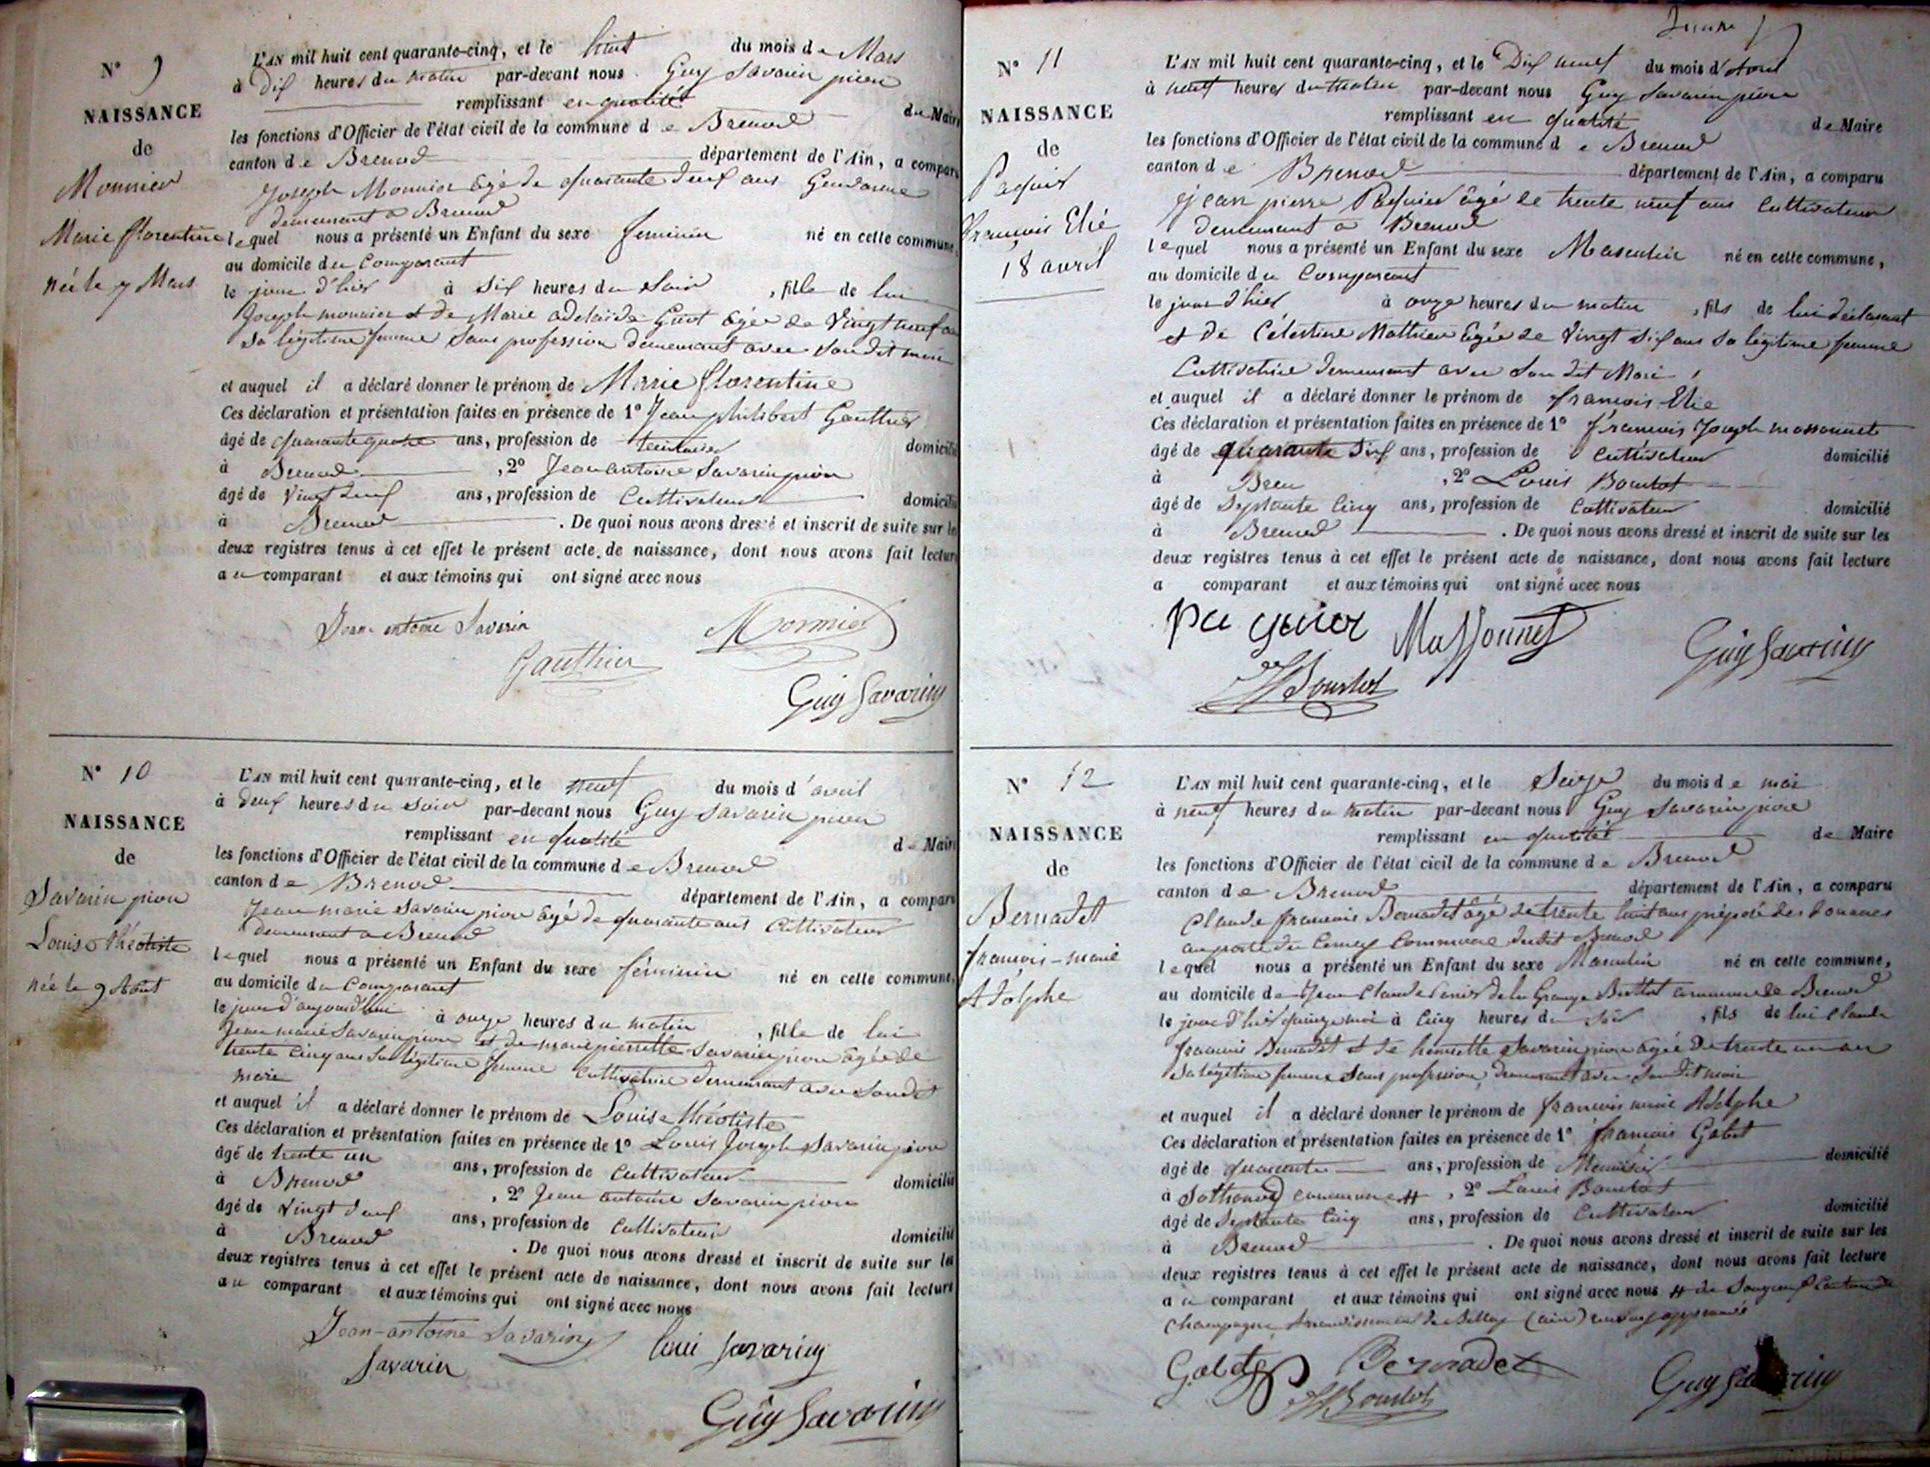 N° 9
NAISSANCE
de
Monnier
Marie florentine
née le 7 Mars
L'AN mil huit cent quarante-cinq, et le huit du mois de Mars
à dix heures du matin par-devant nous Guy Savarin pion
remplissant en qualité du Maire
les fonctions d'Officier de l'état civil de la commune de Brenod
canton de Brenod département de l'Ain, a comparu
Joseph Monnier âgé de quarante deux ans Gendarme
demeurant à Brenod
lequel nous a présenté un Enfant du sexe feminin né en cette commune,
au domicile du Comparant
le jour d'hier à six heures du soir, fille de lui
Joseph monnier et de Marie adelaïde Guot âgée de Vingt neuf ans
sa légitime femme sans profession demeurant avec son dit mari
et auquel il a déclaré donner le prénom de Marie florentine
Ces déclaration et présentation faites en présence de 1° Jean philibert Gauthier
âgé de quarante quatre ans, profession de teinturier domicilié
à Brenod, 2° Jean antoine Savarin pion
âgé de Vingt deux ans, profession de Cultivateur domicilié
à Brenod. De quoi nous avons dressé et inscrit de suite sur les
deux registres tenus à cet effet le présent acte de naissance, dont nous avons fait lecture
au comparant et aux témoins qui ont signé avec nous
Jean-antoine Savarin Monnier
Gauthier
Guy Savarin
N° 10
NAISSANCE
de
Savarin pion
Louise théotiste
née le 9 Aout
L'AN mil huit cent quarante-cinq, et le neuf du mois d'avril
à deux heures du soir par-devant nous Guy Savarin pion
remplissant en qualité de Maire
les fonctions d'Officier de l'état civil de la commune de Brenod
canton de Brenod département de l'Ain, a comparu
Jean marie Savarin pion âgé de quarante ans Cultivateur
demeurant à Brenod
lequel nous a présenté un Enfant du sexe féminin né en cette commune,
au domicile du Comparant
le jour d'aujourd'hui à onze heures du matin, fille de lui
Jean marie Savarin pion et de marie pierrette Savarin pion âgée de
trente cinq ans sa légitime femme Cultivatrice demeurant avec son dit
mari
et auquel il a déclaré donner le prénom de Louise théotiste
Ces déclaration et présentation faites en présence de 1° Louis Joseph Savarin pion
âgé de trente un ans, profession de Cultivateur domicilié
à Brenod, 2° Jean antoine Savarin pion
âgé de Vingt deux ans, profession de Cultivateur domicilié
à Brenod. De quoi nous avons dressé et inscrit de suite sur les
deux registres tenus à cet effet le présent acte de naissance, dont nous avons fait lecture
au comparant et aux témoins qui ont signé avec nous
Jean-antoine Savarin loui Savarin
Savarin
Guy Savarin
N° 11
NAISSANCE
de
Paquir
François Elie
18 avril
L'AN mil huit cent quarante-cinq, et le Dix neuf du mois d'Avril
à neuf heures du matin par-devant nous Guy Savarin pion
remplissant en qualité de Maire
les fonctions d'Officier de l'état civil de la commune de Brenod
canton de Brenod département de l'Ain, a comparu
Jean pierre Paquier âgé de trente neuf ans Cultivateur
demeurant à Brenod
lequel nous a présenté un Enfant du sexe Masculin né en cette commune,
au domicile du Comparant
le jour d'hier à onze heures du matin, fils de lui déclarant
et de Célestine Mathieu âgée de Vingt six ans sa légitime femme
Cultivatrice demeurant avec son dit Mari
et auquel il a déclaré donner le prénom de françois Elie
Ces déclaration et présentation faites en présence de 1° françois Joseph massonnet
âgé de quarante six ans, profession de Cultivateur domicilié
à Bren, 2° Louis Bourlot
âgé de Septante Cinq ans, profession de Cultivateur domicilié
à Brenod. De quoi nous avons dressé et inscrit de suite sur les
deux registres tenus à cet effet le présent acte de naissance, dont nous avons fait lecture
a comparant et aux témoins qui ont signé avec nous
Massonnet
Guy Savarin
Bourlot
N° 12
NAISSANCE
de
Bernadet
françois-marie
Adolphe
L'AN mil huit cent quarante-cinq, et le Seize du mois de mai
à neuf heures du matin par-devant nous Guy Savarin pion
remplissant en qualité de Maire
les fonctions d'Officier de l'état civil de la commune de Brenod
canton de Brenod département de l'Ain, a comparu
Claude françois Bernadet âgé de trente huit ans préposé des douanes
au poste du Commune dudit Brenod
lequel nous a présenté un Enfant du sexe Masculin né en cette commune,
au domicile de Jean Claude de la Grange commune de Brenod
le jour d'hier quinze mai à Cinq heures du soir, fils de lui Claude
françois Bernadet et de henriette Savarin pion âgée de trente un an
sa légitime femme sans profession, demeurant avec son dit mari
et auquel il a déclaré donner le prénom de françois marie Adolphe
Ces déclaration et présentation faites en présence de 1° françois Gabet
âgé de quarante ans, profession de Menuisier domicilié
à Sothonod commune #, 2° Louis Bourlot
âgé de Septante Cinq ans, profession de Cultivateur domicilié
à Brenod. De quoi nous avons dressé et inscrit de suite sur les
deux registres tenus à cet effet le présent acte de naissance, dont nous avons fait lecture
au comparant et aux témoins qui ont signé avec nous # de Songieu Canton de
Champagne Arrondissement de Belley (ain) renvoy approuvé
Bernadet
Bourlot
Guy Savarin